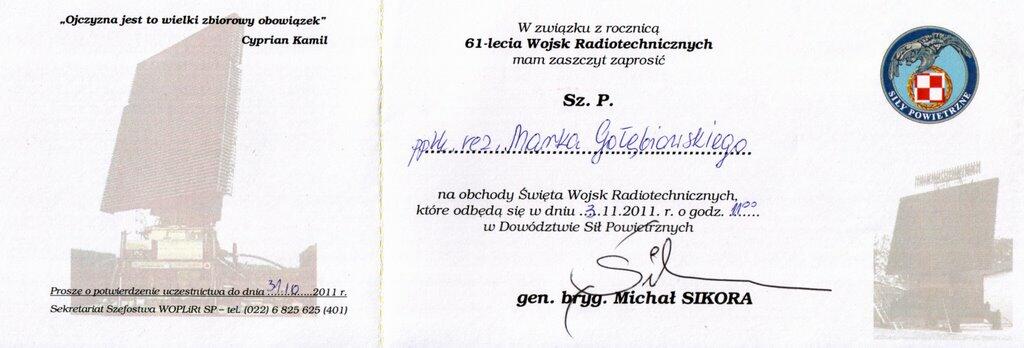 „Ojczyzna jest to wielki zbiorowy obowiązek”
Cyprian Kamil
Proszę o potwierdzenie uczestnictwa do dnia 31.10 2011 r.
Sekretariat Szefostwa WOPLiRt SP – tel. (022) 6 825 625 (401)
W związku z rocznicą
61-lecia Wojsk Radiotechnicznych
mam zaszczyt zaprosić
Sz. P.
ppłk. rez. Marka Gołębiowskiego
na obchody Święta Wojsk Radiotechnicznych,
które odbędą się w dniu .3..11.2011. r. o godz. 11⁰⁰.....
w Dowództwie Sił Powietrznych
gen. bryg. Michał SIKORA
SIŁY POWIETRZNE